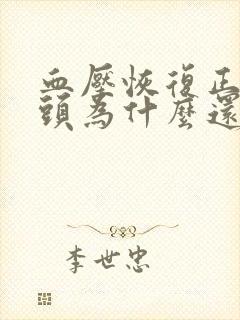 血壓恢復正
頭為什麼還
李世忠